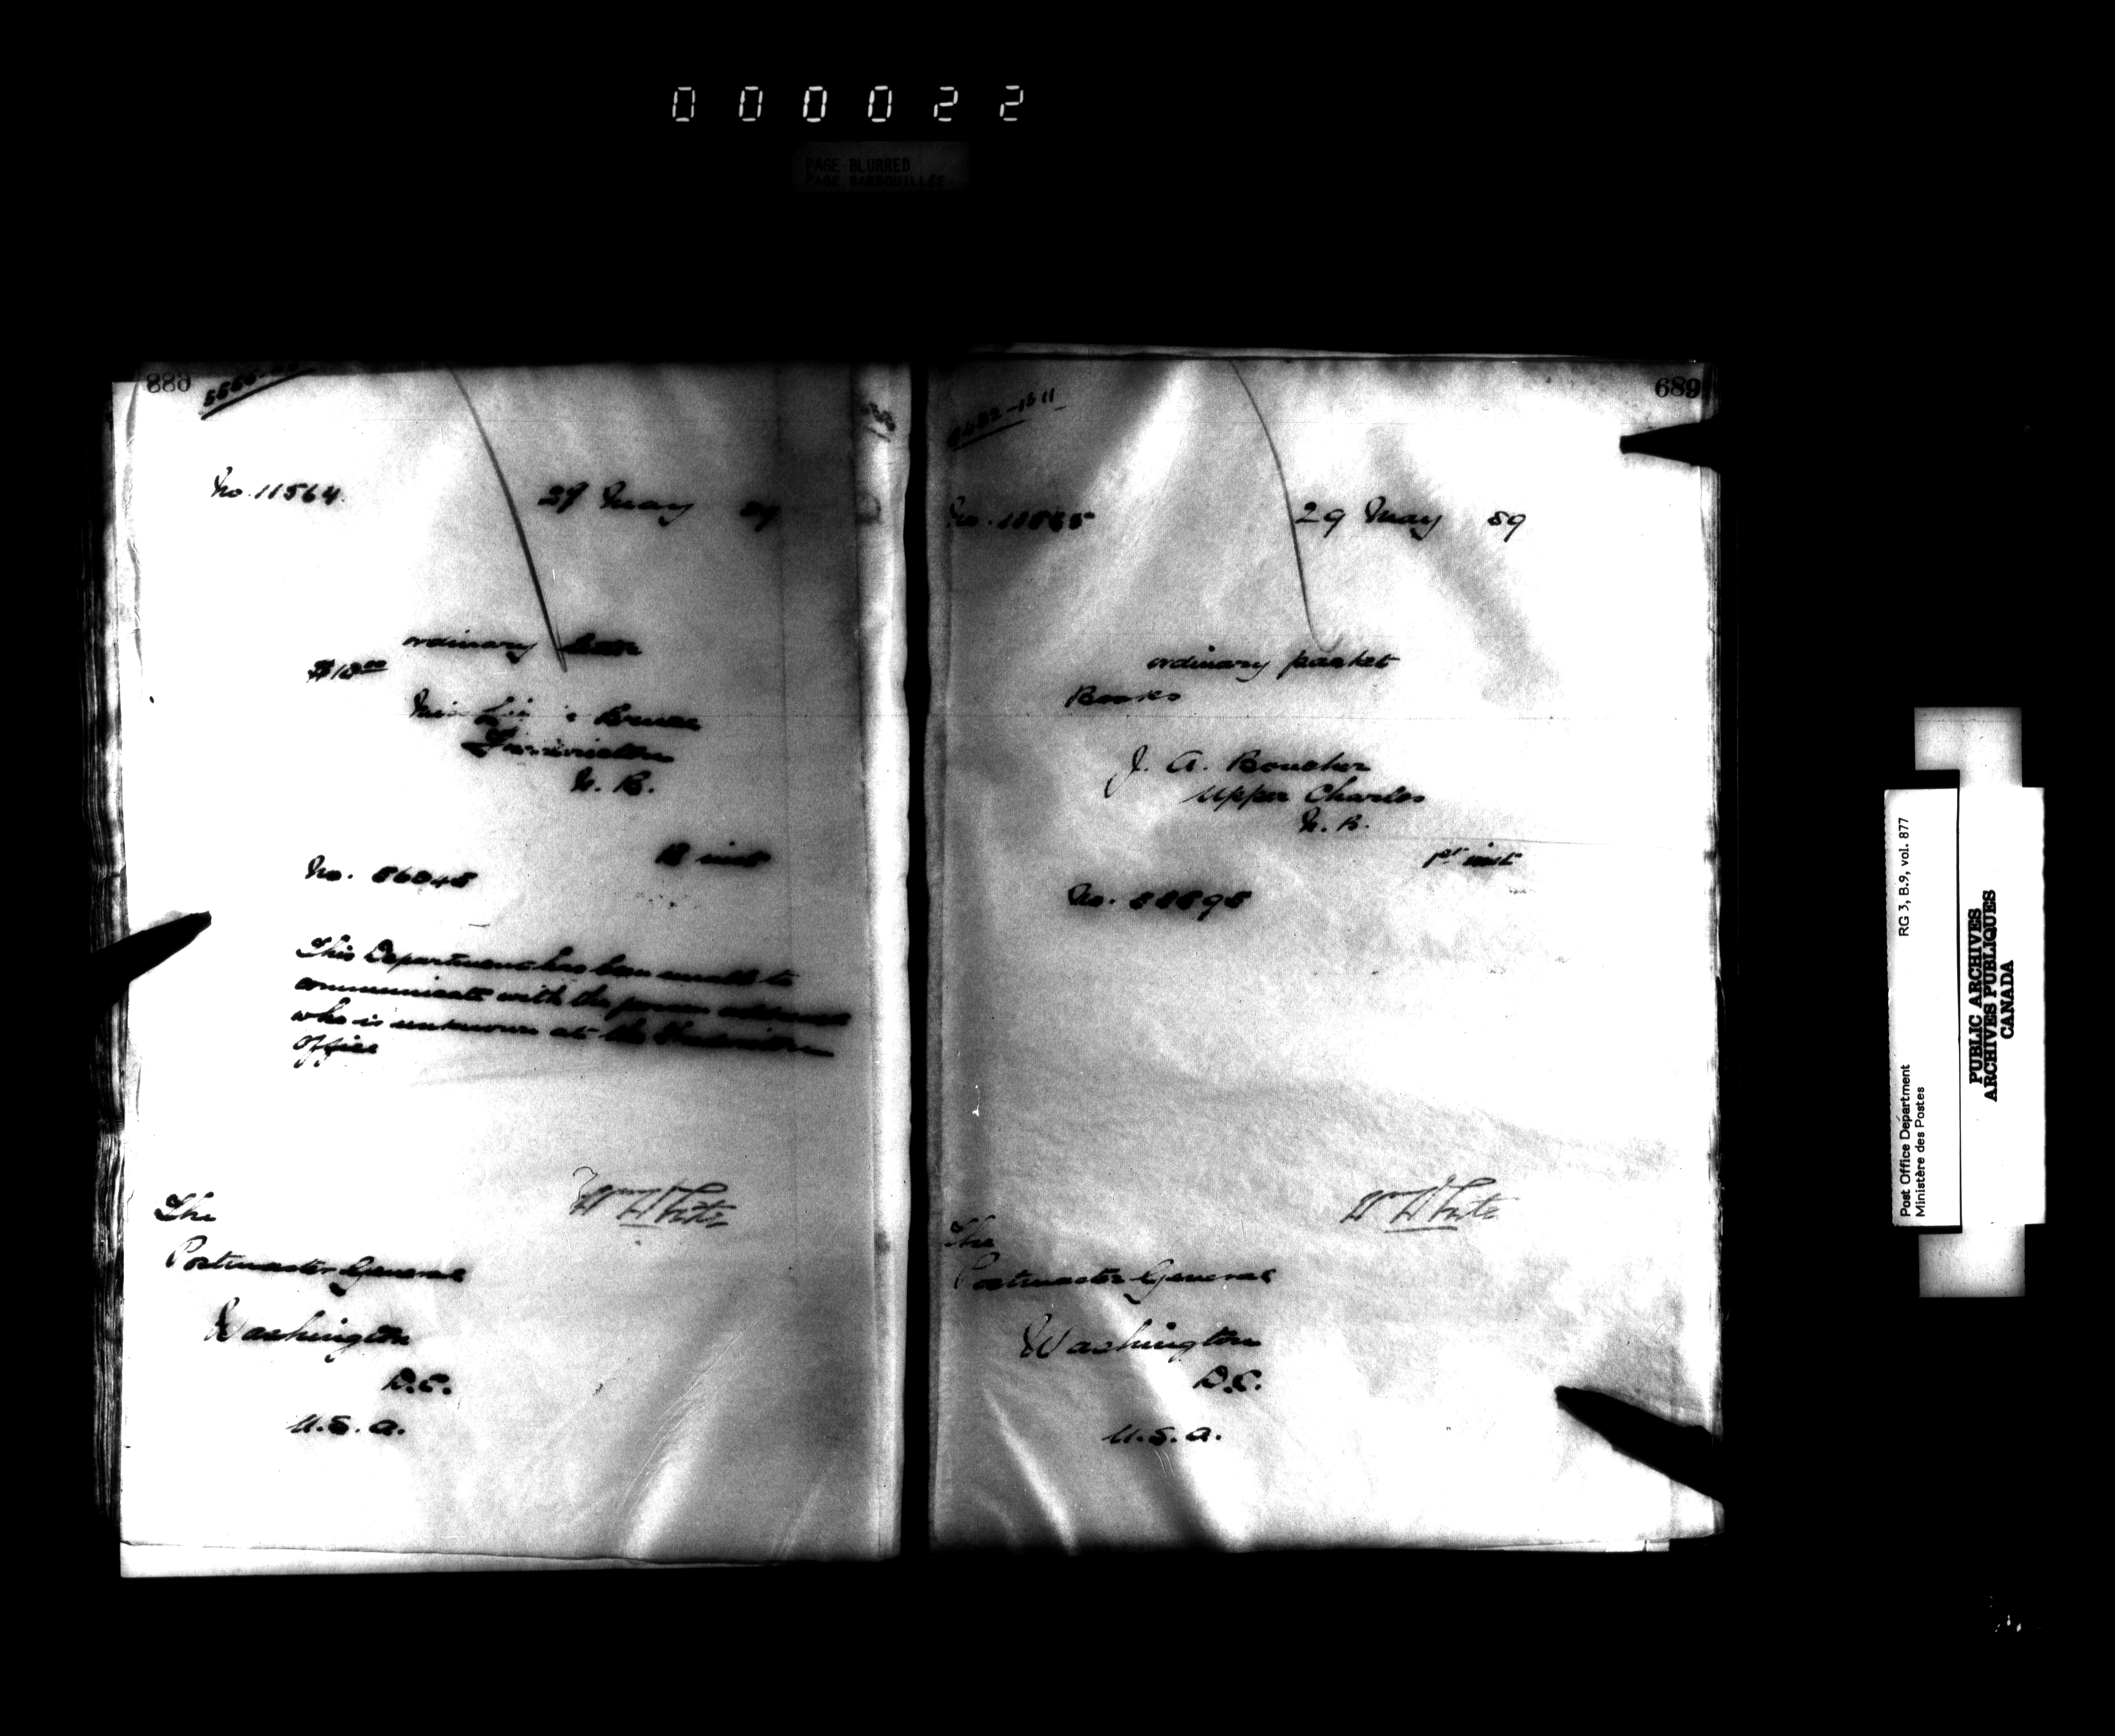 000022
PAGE BLURRED
PAGE BARBOUILLÉE
No. 11564
29 May 89
ordinary letter
$10.00
Bruce
Fredericton
N. B.
18 inst
No. 86048
This Department has been unable to
communicate with the person addressed
who is unknown at the Fredericton
office
Wm White
The
Postmaster General
Washington
D.C.
U.S.A.
689
No.
29 May 89
ordinary packet
Books
J. A. Boucher
Upper Charles
N. B.
1st inst
No.
Wm White
The
Postmaster General
Washington
D.C.
U.S.A.
Post Office Department
Ministère des Postes
RG 3, B.9, vol. 877
PUBLIC ARCHIVES
ARCHIVES PUBLIQUES
CANADA